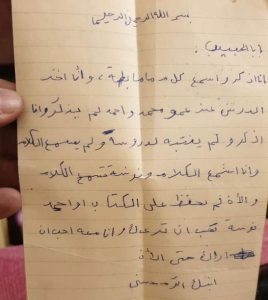 بسم الله الرحمن الرحيم
بابا الحبيب
انا اذكر واسمع كلام ماما بطه، وأنا اخذ
الدرس عند عمو محمد واحمد لم يذكر وانا
اذكر ولم ينتبه لدروسه ولم يسمع الكلام
وانا استمع الكلام ونوسه تسمع الكلام
والآن لم تحفظ على الكتاب او احمد
نوسة تحب ان وانا معه احب ان
اراك حتى الآن